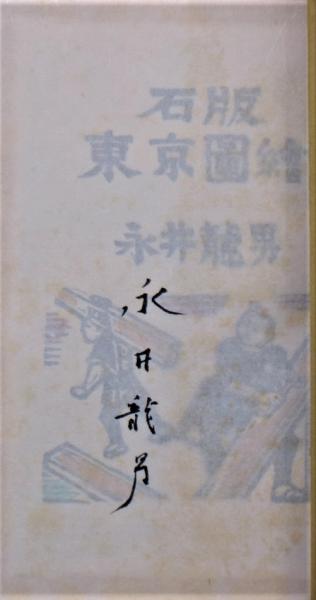 石版
東京圖繪
永井龍男
永井龍男